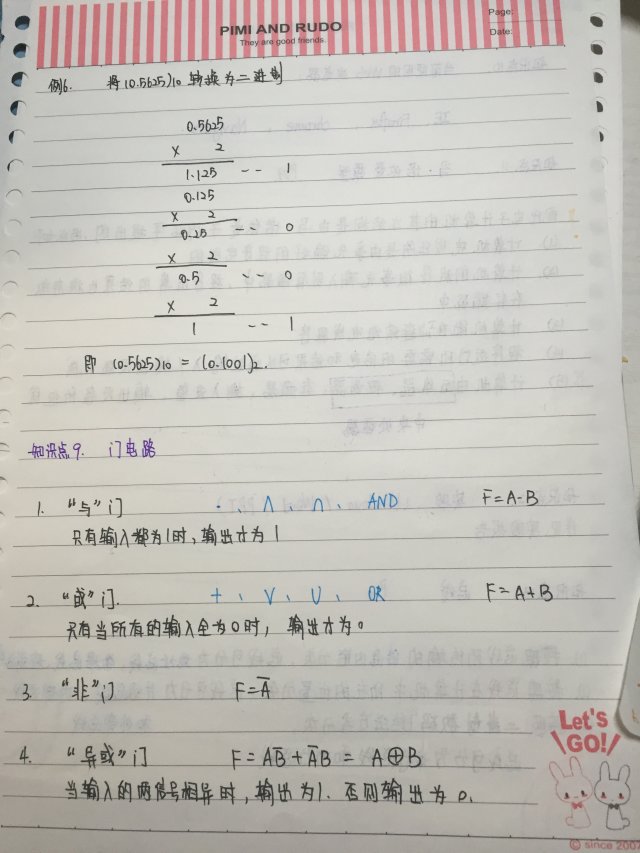 PIMI AND RUDO
They are good friends.
Page:
Date:
例6. 将(0.5625)10 转换为二进制
0.5625
× 2
1.125 -- 1
0.125
× 2
0.25 -- 0
× 2
0.5 -- 0
× 2
1 -- 1
即 (0.5625)10 = (0.1001)2.
知识点9. 门电路
1. “与”门 ·、∧、∩、AND F=A·B
只有输入都为1时,输出才为1
2. “或”门. +、∨、∪、OR F=A+B
只有当所有的输入全为0时,输出才为0
3. “非”门 F=A̅
4. “异或”门 F=AB̅+A̅B = A⊕B
当输入的两信号相异时,输出为1. 否则输出为0.
Let's
GO!
© since 2007